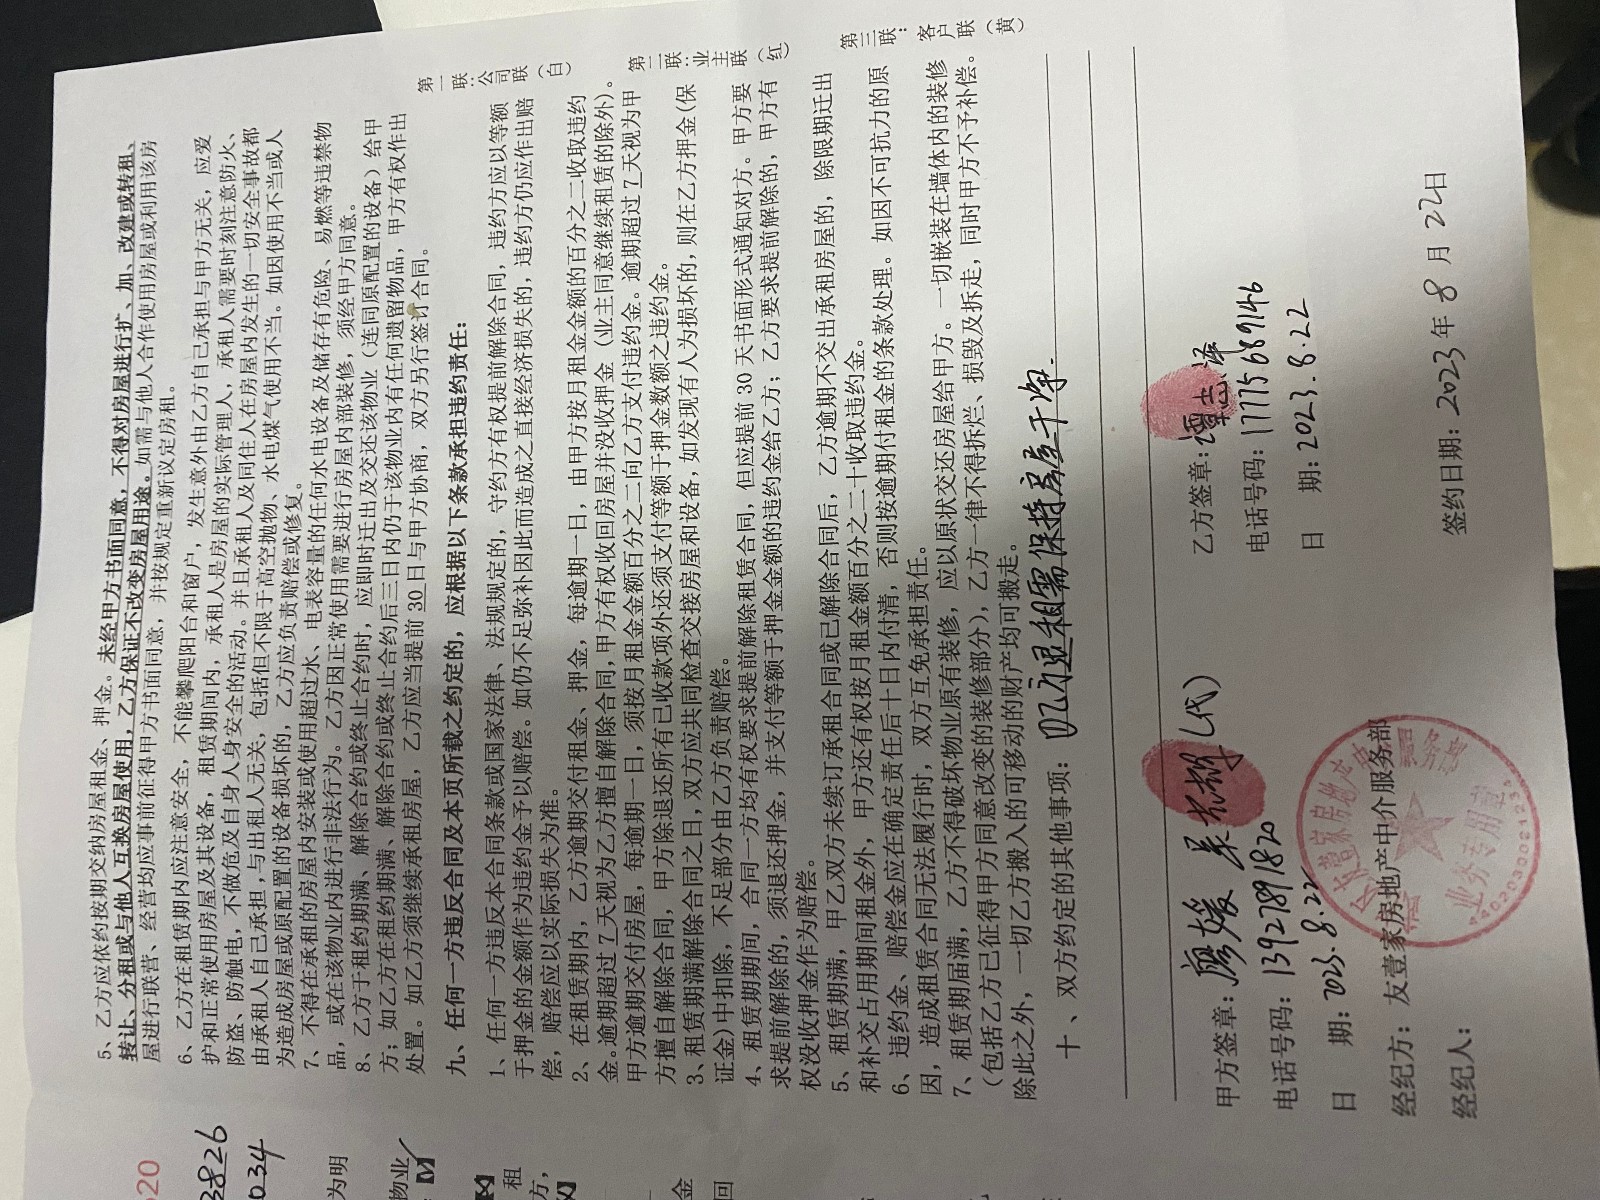 5、乙方应依约按期交纳房屋租金、押金。未经甲方书面同意，不得对房屋进行扩、加、改建或转租、
转让、分租或与他人互换房屋使用，乙方保证不改变房屋用途。如需与他人合作使用房屋或利用该房
屋进行联营、经营均应事前征得甲方书面同意，并按规定重新议定房租。
6、乙方在租赁期内应注意安全，不能攀爬阳台和窗户，发生意外由乙方自己承担与甲方无关，应爱
护和正常使用房屋及其设备，租赁期间内，承租人是房屋的实际管理人，承租人需要时刻注意防火、
防盗、防触电，不做危及自身人身安全的活动。并且承租人及同住人在房屋内发生的一切安全事故都
由承租人自己承担，与出租人无关，包括但不限于高空抛物、水电煤气使用不当。如因使用不当或人
为造成房屋或原配置的设备损坏的，乙方应负责赔偿或修复。
7、不得在承租的房屋内安装或使用超过水、电表容量的任何水电设备及储存有危险、易燃等违禁物
品，或在该物业内进行非法行为。乙方因正常使用需要进行房屋内部装修，须经甲方同意。
8、乙方于租约期满、解除合约或终止合约时，应即时迁出及交还该物业（连同原配置的设备）给甲
方；如乙方在租约期满、解除合约或终止合约后三日内仍于该物业内有任何遗留物品，甲方有权作出
处置。如乙方须继续承租房屋，乙方应当提前 30 日与甲方协商，双方另行签订合同。
九、任何一方违反合同及本页所载之约定的，应根据以下条款承担违约责任：
1、任何一方违反本合同条款或国家法律、法规规定的，守约方有权提前解除合同，违约方应以等额
于押金的金额作为违约金予以赔偿。如仍不足弥补因此而造成之直接经济损失的，违约方仍应作出赔
偿，赔偿应以实际损失为准。
2、在租赁期内，乙方逾期交付租金、押金，每逾期一日，由甲方按月租金金额的百分之二收取违约
金。逾期超过 7 天视为乙方擅自解除合同，甲方有权收回房屋并没收押金（业主同意继续租赁的除外）。
甲方逾期交付房屋，每逾期一日，须按月租金金额百分之二向乙方支付违约金。逾期超过 7 天视为甲
方擅自解除合同，甲方除退还所有已收款项外还须支付等额于押金数额之违约金。
3、租赁期满解除合同之日，双方应共同检查交接房屋和设备，如发现有人为损坏的，则在乙方押金（保
证金）中扣除，不足部分由乙方负责赔偿。
4、租赁期期间，合同一方均有权要求提前解除租赁合同，但应提前 30 天书面形式通知对方。甲方要
求提前解除的，须退还押金，并支付等额于押金金额的违约金给乙方；乙方要求提前解除的，甲方有
权没收押金作为赔偿。
5、租赁期满，甲乙双方未续订承租合同或已解除合同后，乙方逾期不交出承租房屋的，除限期迁出
和补交占用期间租金外，甲方还有权按月租金额百分之二十收取违约金。
6、违约金、赔偿金应在确定责任后十日内付清，否则按逾期付租金的条款处理。如因不可抗力的原
因，造成租赁合同无法履行时，双方互免承担责任。
7、租赁期届满，乙方不得破坏物业原有装修，应以原状交还房屋给甲方。一切嵌装在墙体内的装修
（包括乙方已征得甲方同意改变的装修部分），乙方一律不得拆烂、损毁及拆走，同时甲方不予补偿。
除此之外，一切乙方搬入的可移动的财产均可搬走。
十、双方约定的其他事项：以后退租需保持房屋干净.
甲方签章：廖媛 (代)
电话号码：13927891820
日 期：2023.8.22
经纪方：友壹家房地产中介服务部
经纪人：
乙方签章：谭志泽
电话号码：17775689146
日 期：2023.8.22
签约日期：2023 年 8 月 22日
第一联：公司联（白）
第二联：业主联（红）
第三联：客户联（黄）
业务专用章
620
3826
034
为明
物业
租
方，
金
回